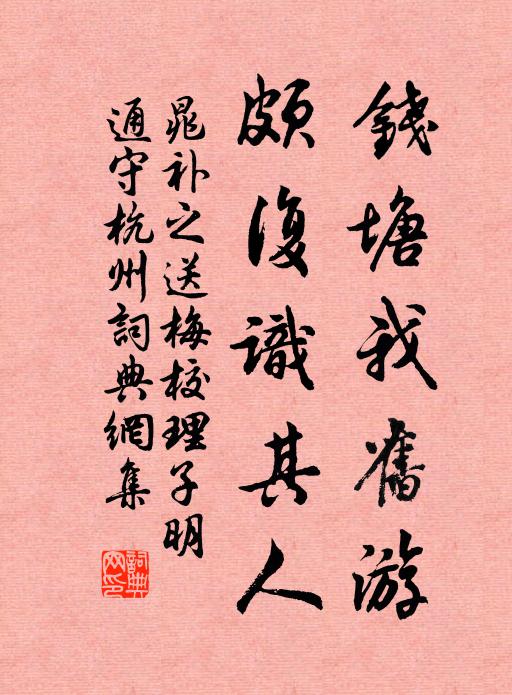 錢塘我舊游
頗復識其人
晁补之送梅校理子明
通守杭州詞典網集
詞典網印